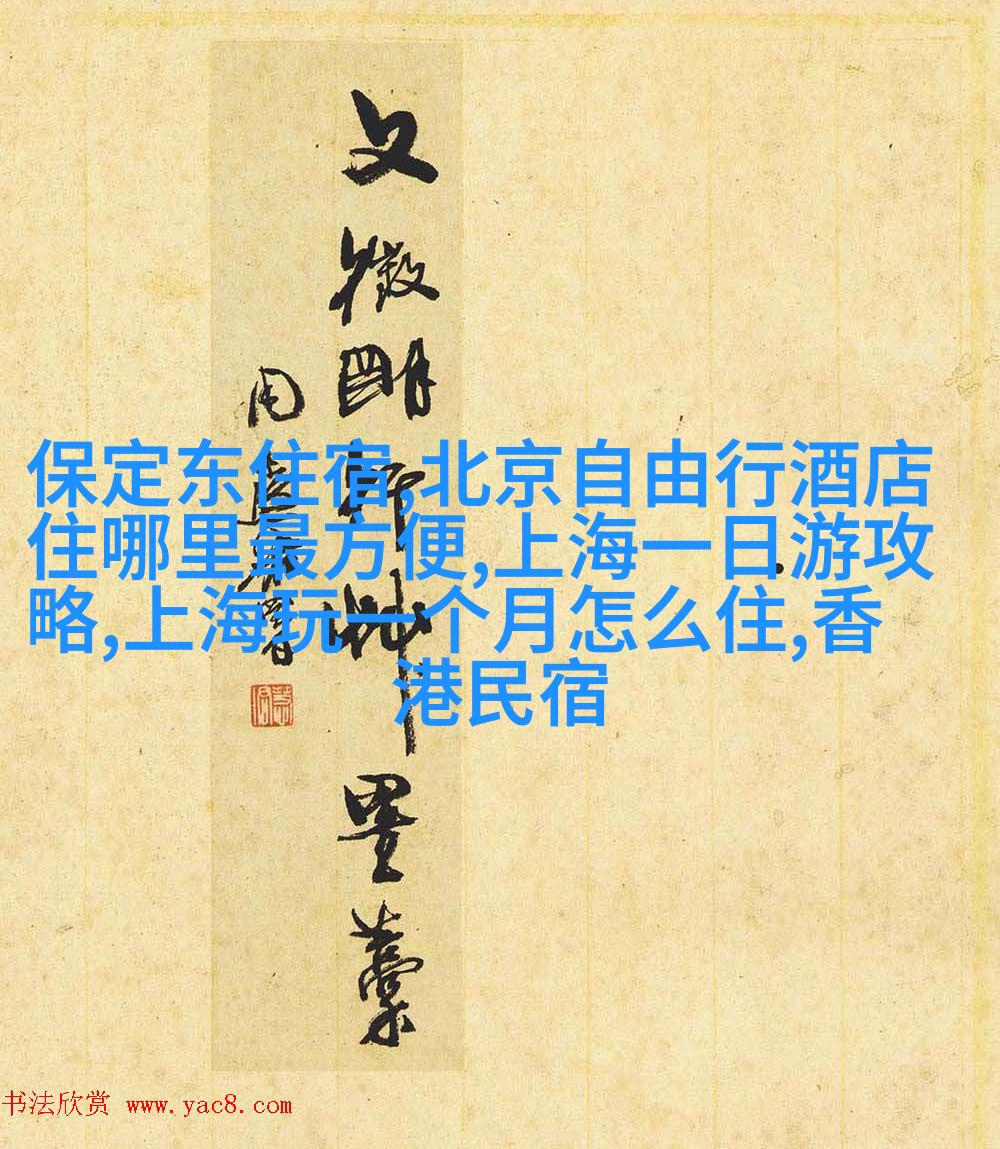 文徵明
墨藁
保定东住宿,北京自由行酒店
住哪里最方便,上海一日游攻
略,上海玩一个月怎么住,香
港民宿
书法欣赏 www.yac8.com